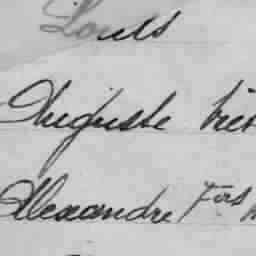 Louis
Auguste
Alexandre Fois